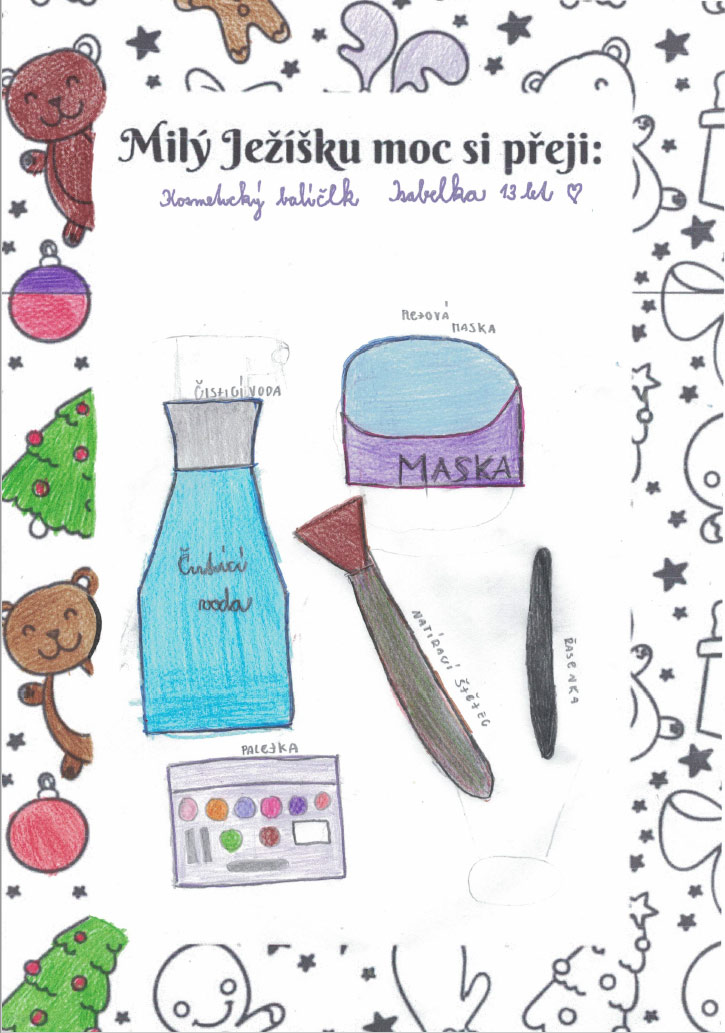 Milý Ježíšku moc si přeji:
Kosmetický balíčlk Isabelka 13 let ♡
PLEŤOVÁ
MASKA
ČISTICÍ VODA
MASKA
Čistící
voda
NATÍRACÍ ŠTĚTEC
ŘASENKA
PALETKA